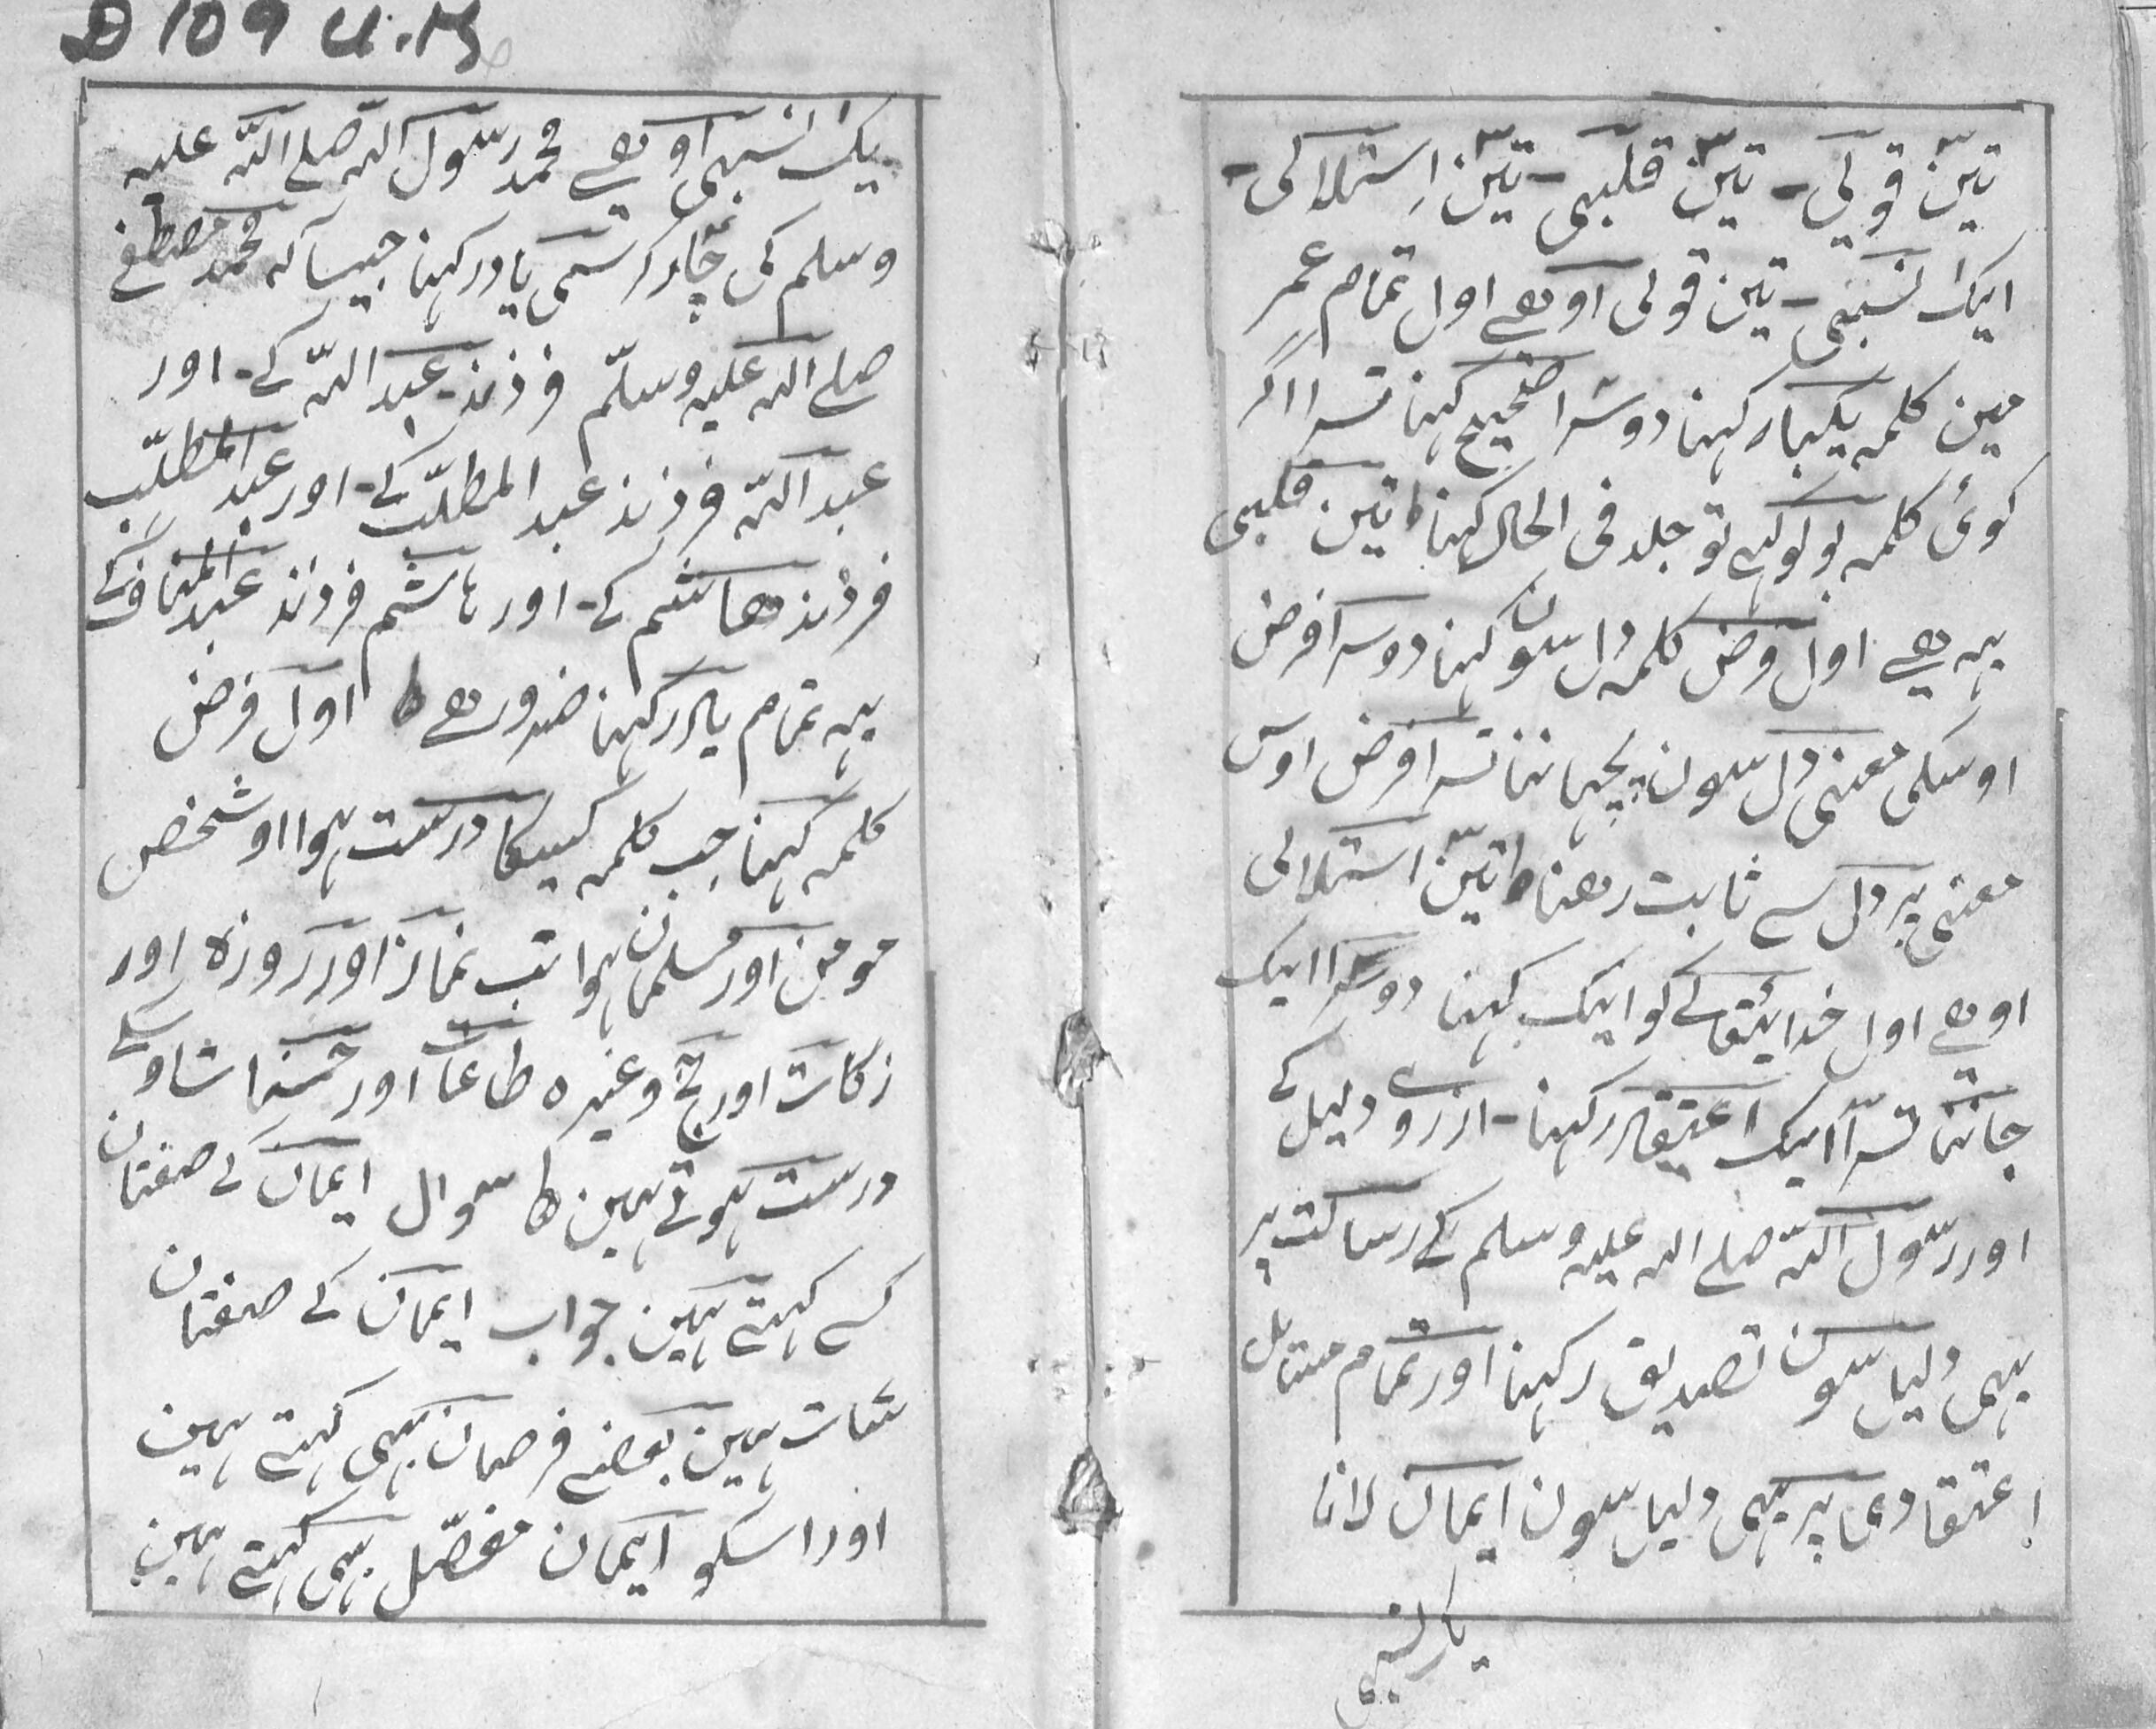 D 109 U.M
تین قولی - تین قلبی - تین استدلالی -
ایک نسبی - تین قولی او ھے اول تمام عمر
مین کلمہ یکبار کہنا دوسرا صحیح کہنا تسرا اگر
کوئ کلمہ بولو کہے تو جلد فی الحال کہنا ط تین قلبی
یہہ ھے اول فرض کلمہ دل سون کہنا دوسرا فرض
اوسکی معنی دل سون پچہاننا تسرا فرض اوس
معنی پر دل سے ثابت رھنا ط تین استدلالی
او ھے اول خدائتعالے کو ایک کہنا دوسرا ایک
جاننا تسرا ایک اعتیقاد رکہنا - ازروے دلیل کے
اور رسول اللہ صلے اللہ علیہ وسلم کے رسالت پر
بہی دلیل سون تصدیق رکہنا اور تمام مسایل
اعتقادی پر بہی دلیل سون ایمان لانا
یک نسبی
یک نسبی او ھے محمد رسول اللہ صلے اللہ علیہ
وسلم کی چار کرسی یاد رکہنا جیسا کہ محمد مصطفے
صلے اللہ علیہ وسلم فرذند عبد اللہ کے - اور
عبد اللہ فرذند عبد المطلب کے - اور عبد المطلب
فرذند ھاشم کے - اور ہاشم فرذند عبد المناف کے
یہہ تمام یاد رکہنا ضرور ھے ط اول فرض
کلمہ کہنا جب کلمہ کسیکا درست ہوا او شخص
مومن اور مسلمان ہوا تب نماز اور روزہ اور
زکات اور حج وغیرہ طاعات اور حسنات اوسکے
درست ہوتے ہین ط سوال ایمان کے صفتان
کسے کہتے ہین جواب ایمان کے صفتان
سات ہین بعضے فرضان بہی کہتے ہین
اور اسکو ایمان مفصل بہی کہتے ہین